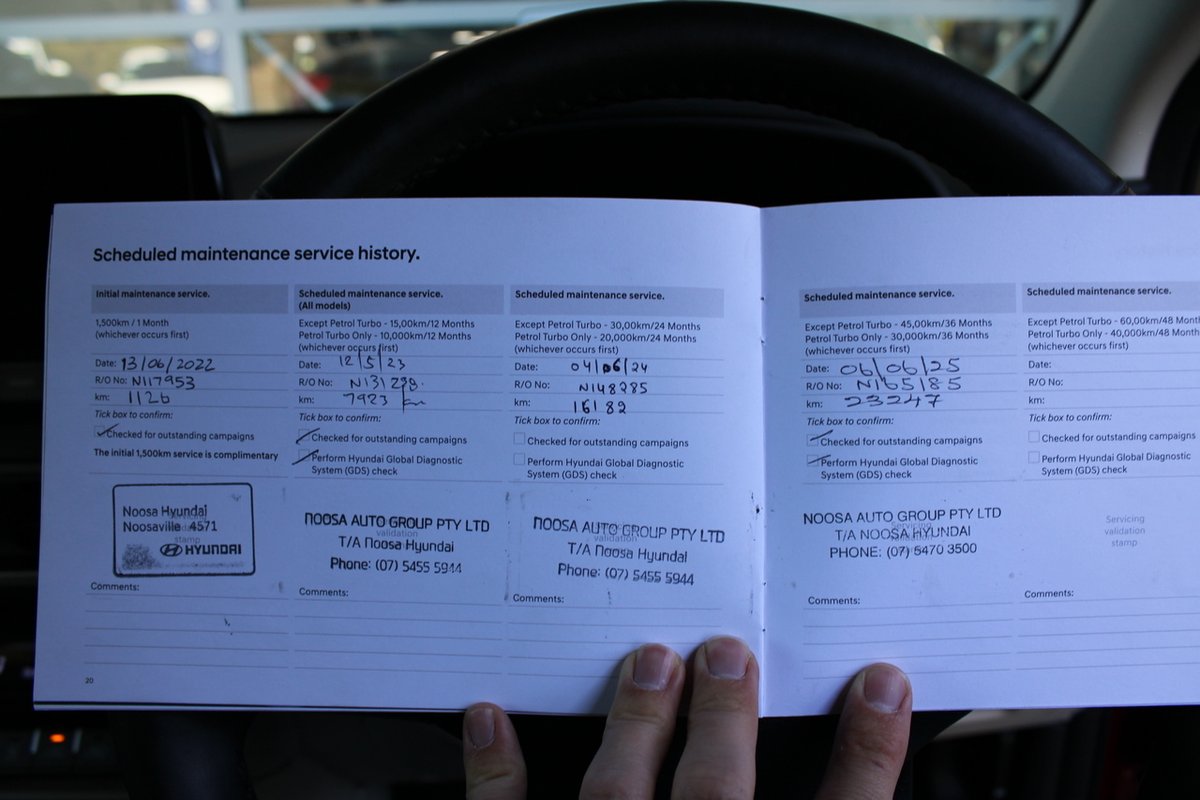 Scheduled maintenance service history.
Initial maintenance service.
1,500km / 1 Month
(whichever occurs first)
Date: 13/06/2022
R/O No: N117953
km: 1126
Tick box to confirm:
Checked for outstanding campaigns
The initial 1,500km service is complimentary
Noosa Hyundai
Noosaville 4571
stamp
HYUNDAI
Comments:
20
Scheduled maintenance service.
(All models)
Except Petrol Turbo - 15,00km/12 Months
Petrol Turbo Only - 10,000km/12 Months
(whichever occurs first)
Date: 12/5/23
R/O No: N131238.
km: 7923 km
Tick box to confirm:
Checked for outstanding campaigns
Perform Hyundai Global Diagnostic
System (GDS) check
NOOSA AUTO GROUP PTY LTD
validation
T/A Noosa Hyundai
Phone: (07) 5455 5944
Comments:
Scheduled maintenance service.
Except Petrol Turbo - 30,00km/24 Months
Petrol Turbo Only - 20,000km/24 Months
(whichever occurs first)
Date: 04/06/24
R/O No: N148285
km: 16182
Tick box to confirm:
Checked for outstanding campaigns
Perform Hyundai Global Diagnostic
System (GDS) check
NOOSA AUTO GROUP PTY LTD
validation
T/A Noosa Hyundai
Phone: (07) 5455 5944
Comments:
Scheduled maintenance service.
Except Petrol Turbo - 45,00km/36 Months
Petrol Turbo Only - 30,000km/36 Months
(whichever occurs first)
Date: 06/06/25
R/O No: N165185
km: 23247
Tick box to confirm:
Checked for outstanding campaigns
Perform Hyundai Global Diagnostic
System (GDS) check
NOOSA AUTO GROUP PTY LTD
T/A NOOSA HYUNDAI
PHONE: (07) 5470 3500
Comments:
Scheduled maintenance service.
Except Petrol Turbo - 60,00km/48 Mont
Petrol Turbo Only - 40,000km/48 Month
(whichever occurs first)
Date:
R/O No:
km:
Tick box to confirm:
Checked for outstanding campaigns
Perform Hyundai Global Diagnostic
System (GDS) check
Servicing
validation
stamp
Comments: